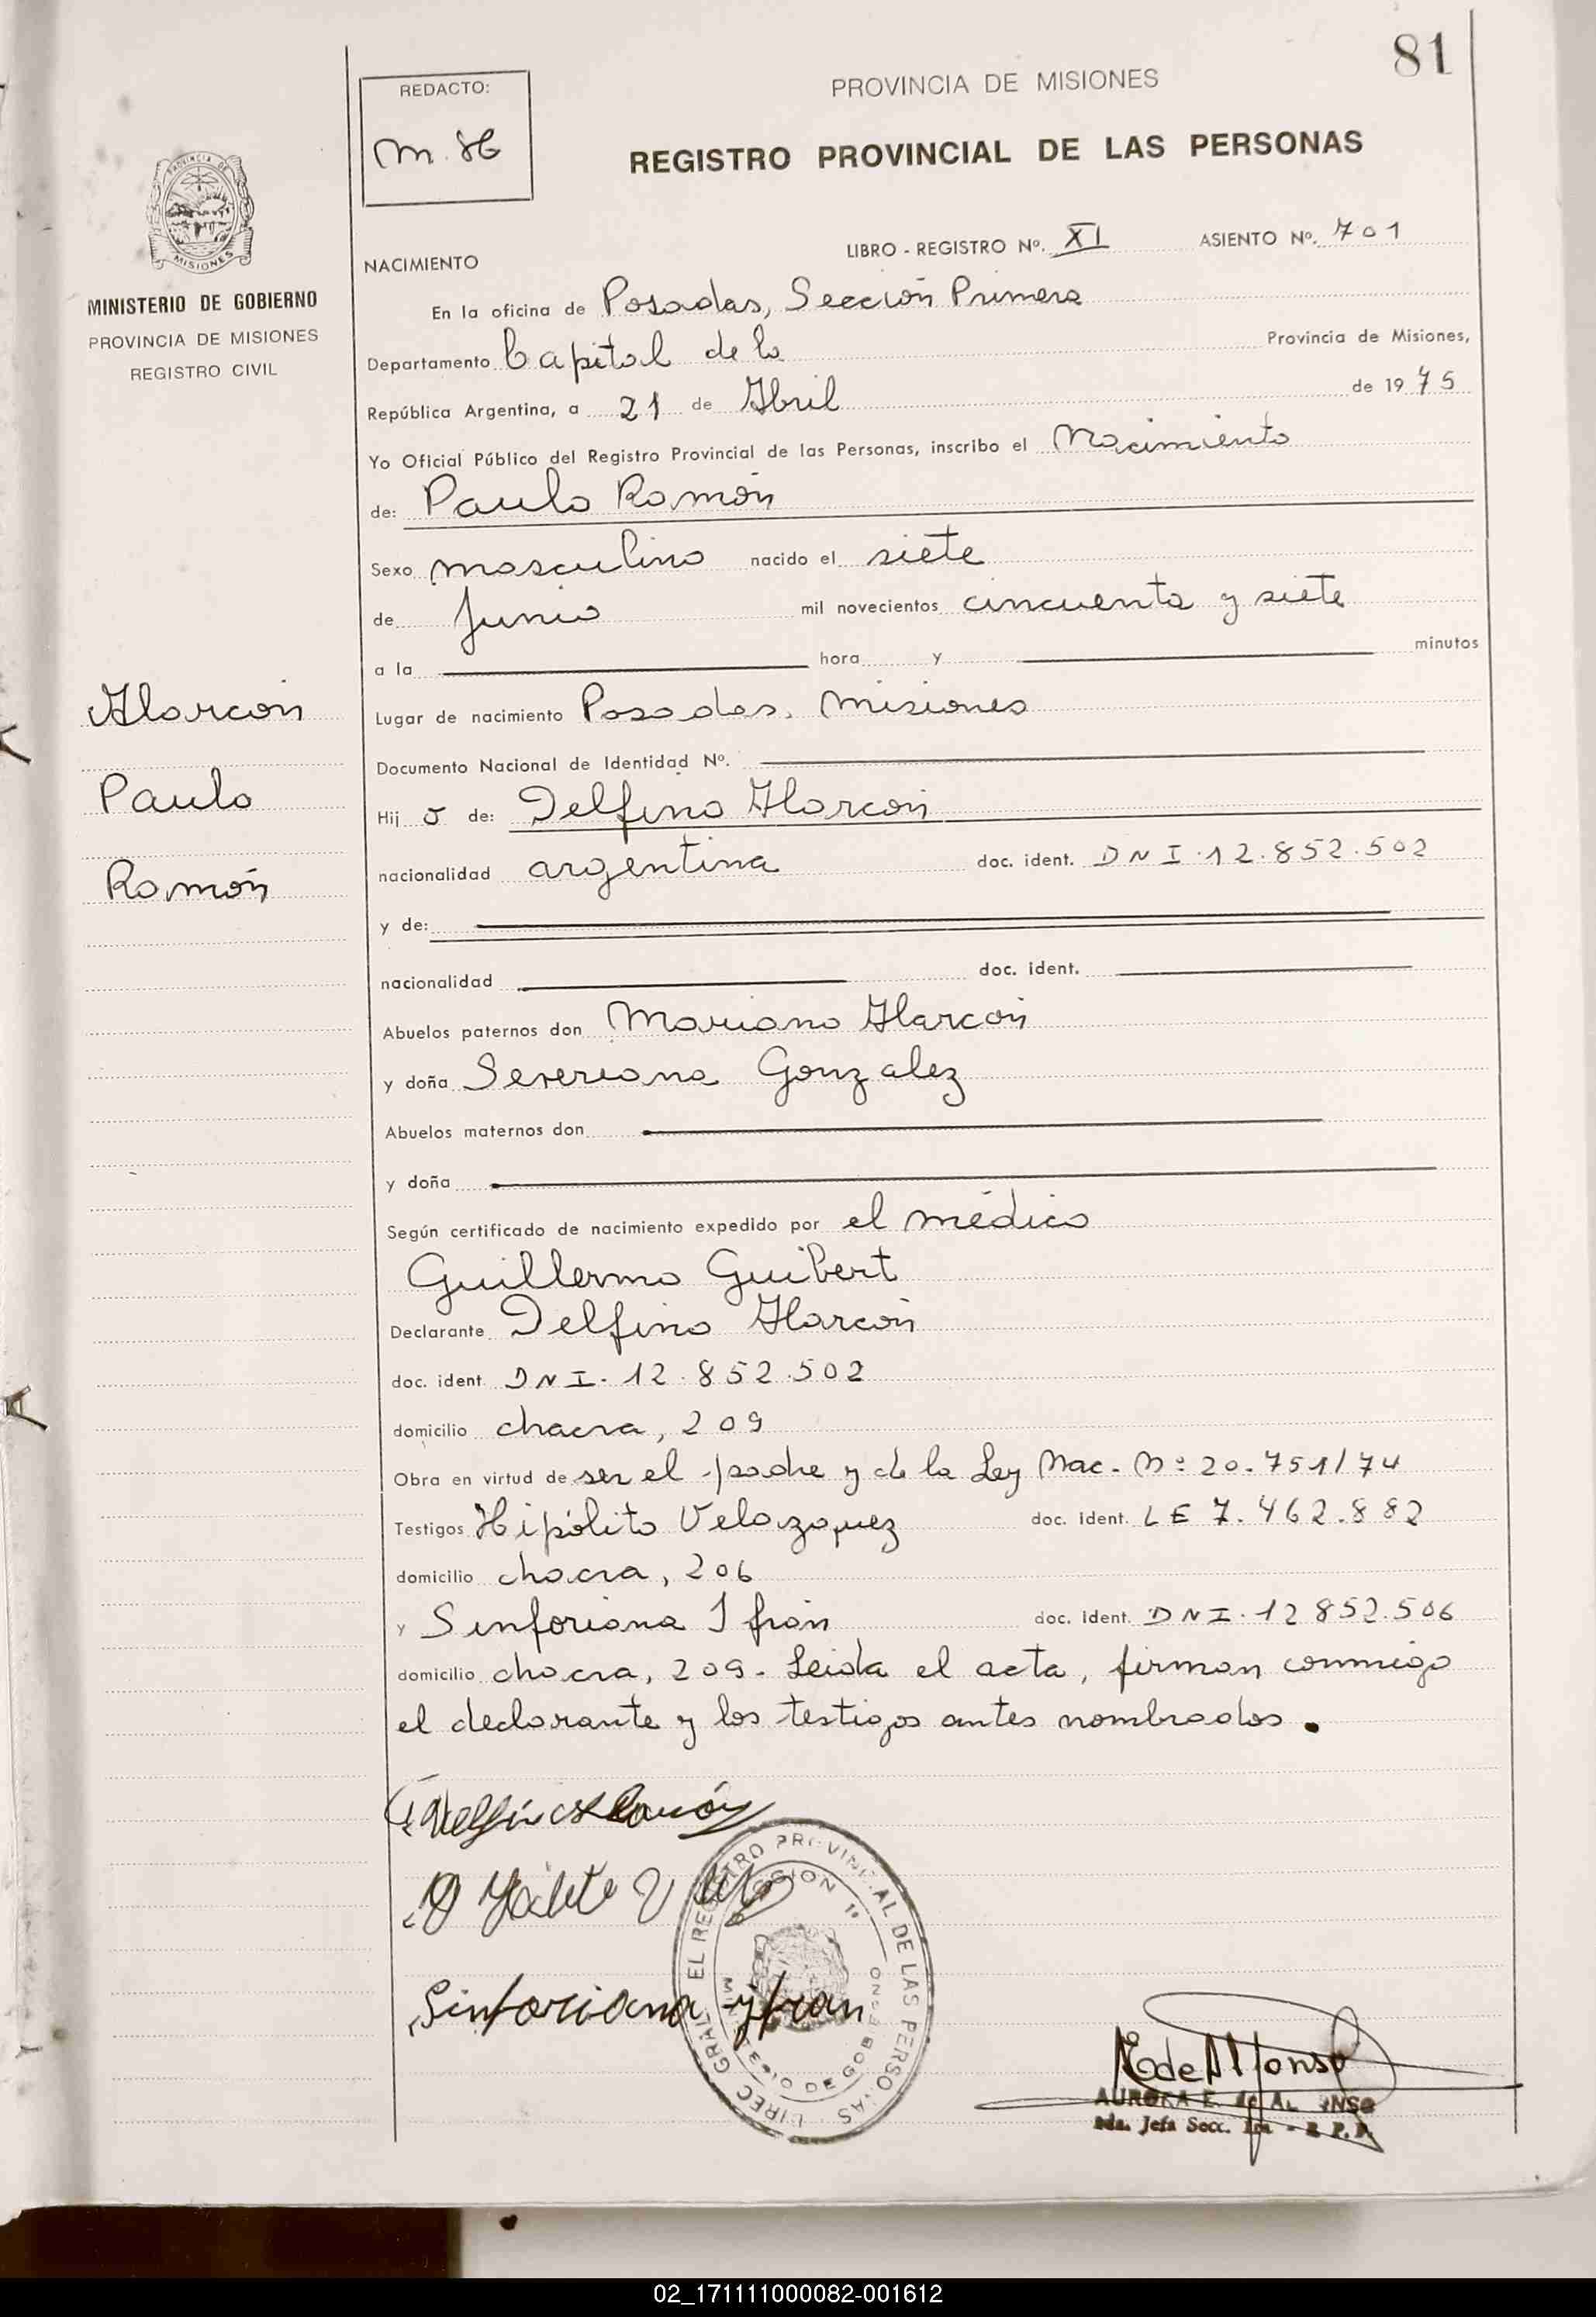 81
REDACTO:
PROVINCIA DE MISIONES
REGISTRO PROVINCIAL DE LAS PERSONAS
LIBRO - REGISTRO Nº. XI ASIENTO Nº. 701
MISIONES
MINISTERIO DE GOBIERNO
PROVINCIA DE MISIONES
REGISTRO CIVIL
Alarcón
Paulo
Ramón
NACIMIENTO
En la oficina de Posadas, Sección Primera
Departamento Capital de la Provincia de Misiones,
República Argentina, a 21 de Abril de 1975
Yo Oficial Público del Registro Provincial de las Personas, inscribo el Nacimiento
de: Paulo Ramón
Sexo masculino nacido el siete
de Junio mil novecientos cincuenta y siete
a la hora y minutos
Lugar de nacimiento Posadas. Misiones
Documento Nacional de Identidad Nº.
Hijo de: Delfino Alarcón
nacionalidad argentina doc. ident. DNI.12.852.502
y de:
nacionalidad doc. ident.
Abuelos paternos don Mariano Alarcón
y doña Severiana Gonzalez
Abuelos maternos don
y doña
Según certificado de nacimiento expedido por el médico
Guillermo Guibert
Declarante Delfino Alarcón
doc. ident. DNI. 12.852.502
domicilio chacra, 209
Obra en virtud de ser el padre y de la Ley Nac. Nº 20.751/74
Testigos Hipólito Velazquez doc. ident. LE 7.462.882
domicilio chacra, 206
y Sinforiana Ifrán doc. ident. DNI.12852.506
domicilio chacra, 209. Leida el acta, firman conmigo
el declarante y los testigos antes nombrados.
Sinforiana yfran
SECCION 1ª
MINISTERIO DE GOBIERNO
DIREC. GRAL. DEL REGISTRO PROVINCIAL DE LAS PERSONAS
AURORA E. de ALFONSO
02_171111000082-001612